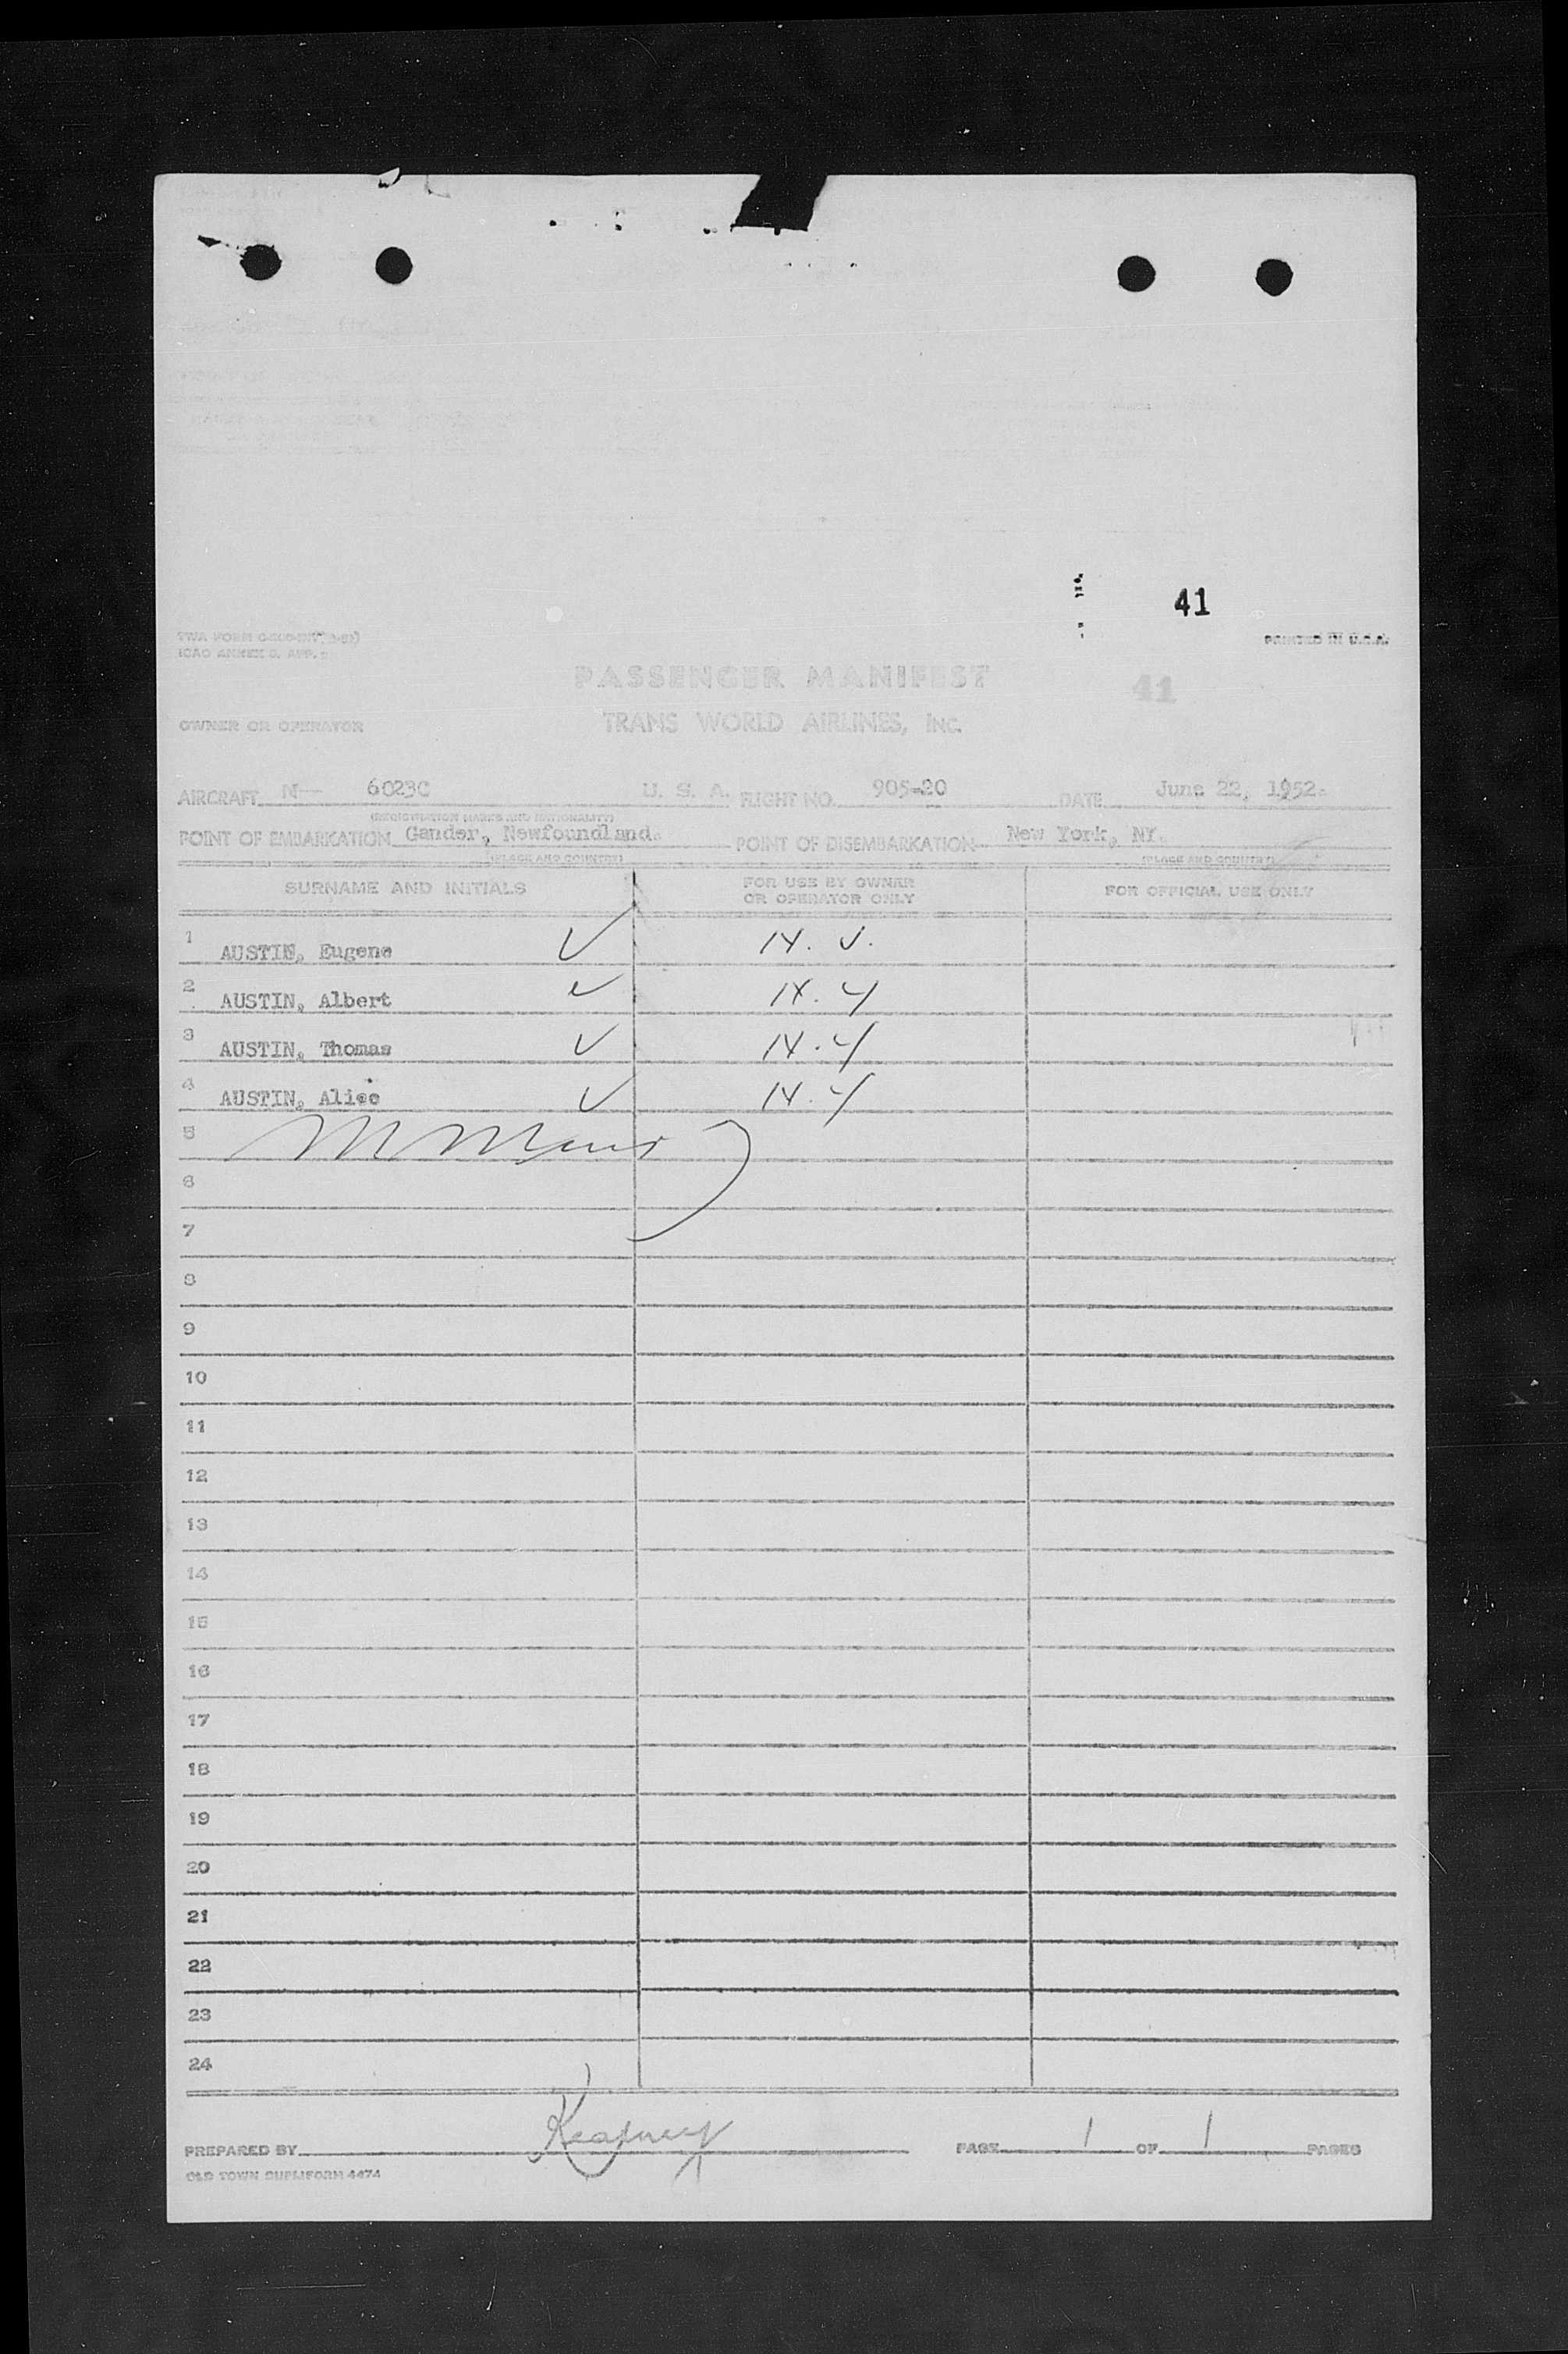 41
PRINTED IN U.S.A.
ICAO ANNEX 9, APP.
PASSENGER MANIFEST
41
OWNER OR OPERATOR TRANS WORLD AIRLINES, INC.
AIRCRAFT N— 6023C U. S. A. FLIGHT NO. 905-20 DATE June 22, 1952.
(REGISTRATION MARKS AND NATIONALITY)
POINT OF EMBARKATION Gander, Newfoundland. POINT OF DISEMBARKATION New York, NY.
(PLACE AND COUNTRY) (PLACE AND COUNTRY)
SURNAME AND INITIALS FOR USE BY OWNER OR OPERATOR ONLY FOR OFFICIAL USE ONLY
1 AUSTIN, Eugene
2 AUSTIN, Albert
3 AUSTIN, Thomas
4 AUSTIN, Alice
5
6
7
8
9
10
11
12
13
14
15
16
17
18
19
20
21
22
23
24
PREPARED BY PAGE 1 OF 1 PAGES
OLD TOWN DUPLIFORM 4474